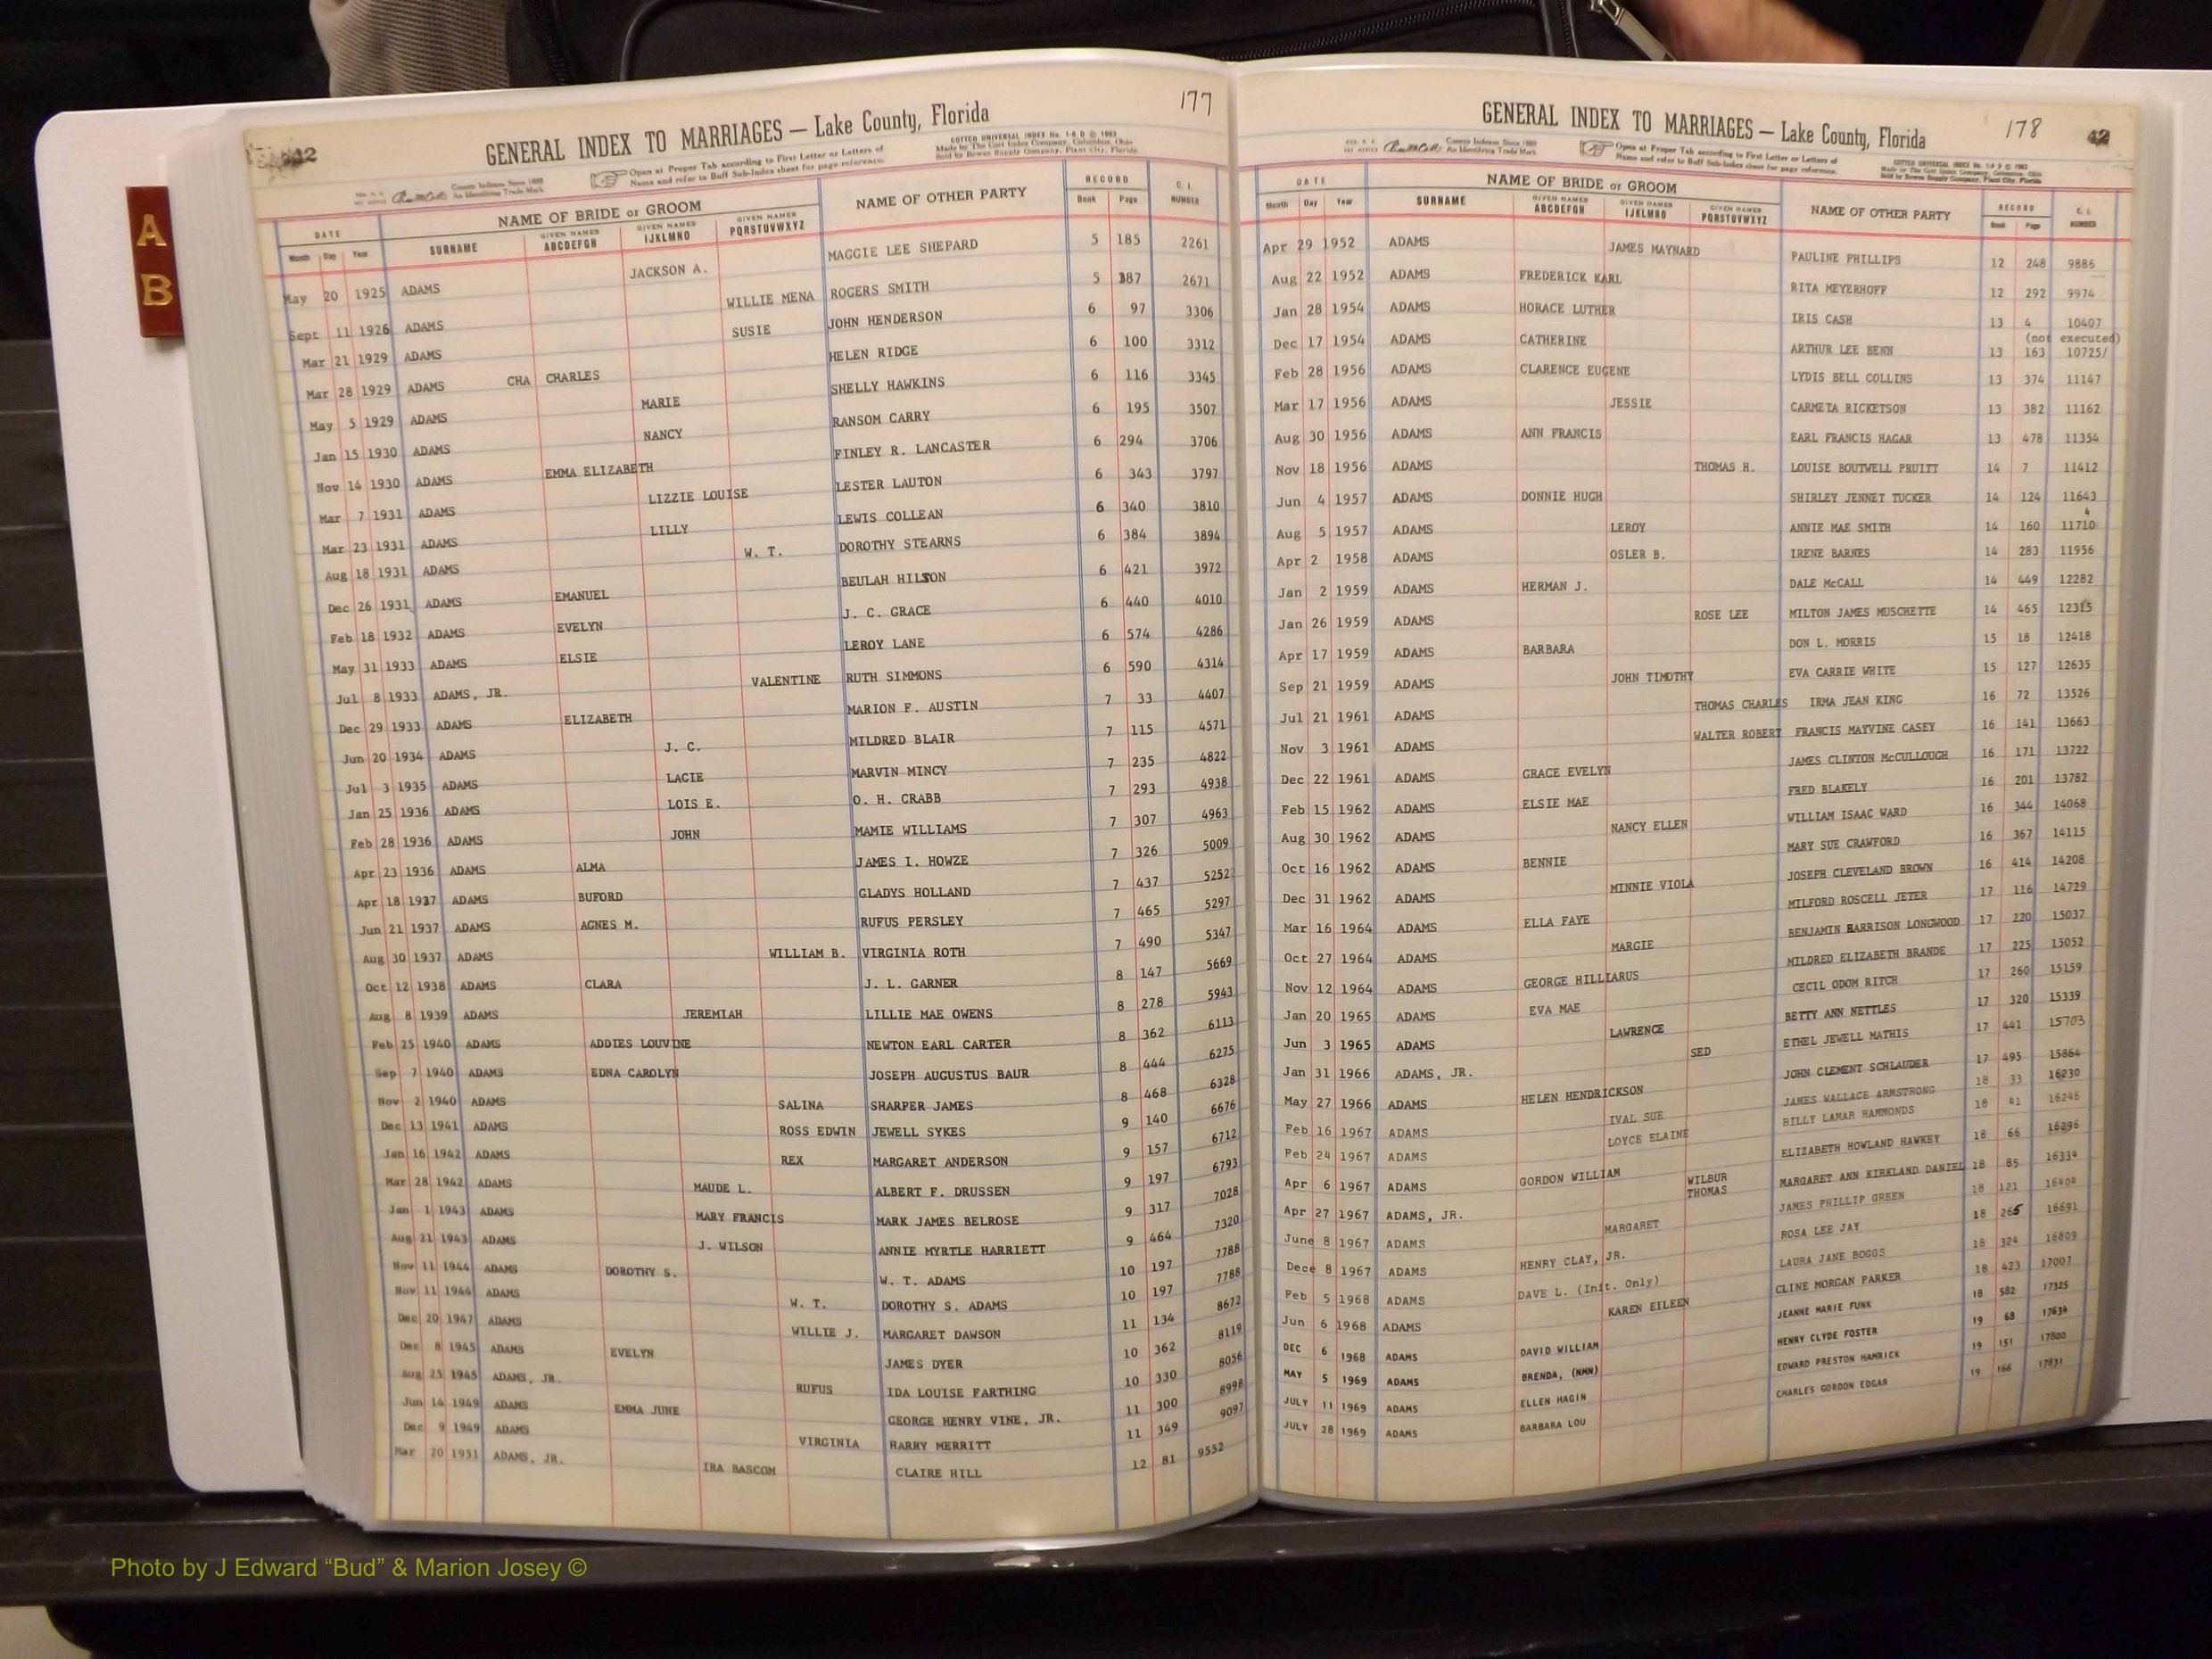 177
GENERAL INDEX TO MARRIAGES — Lake County, Florida
County Indexes Since 1888
An Identifying Trade Mark
Open at Proper Tab according to First Letter or Letters of
Name and refer to Buff Sub-Index sheet for page reference.
COTTCO UNIVERSAL INDEX No.
Made by The Cott Index Company, Columbus, Ohio
Sold by Rowen Supply Company, Plant City, Florida
DATE NAME OF BRIDE or GROOM NAME OF OTHER PARTY RECORD C. I. NUMBER
Month Day Year SURNAME GIVEN NAMES ABCDEFGH GIVEN NAMES IJKLMNO GIVEN NAMES PQRSTUVWXYZ Book Page
May 20 1925 ADAMS JACKSON A. MAGGIE LEE SHEPARD 5 185 2261
Sept 11 1926 ADAMS WILLIE MENA ROGERS SMITH 5 387 2671
Mar 21 1929 ADAMS SUSIE JOHN HENDERSON 6 97 3306
Mar 28 1929 ADAMS CHA CHARLES HELEN RIDGE 6 100 3312
May 5 1929 ADAMS MARIE SHELLY HAWKINS 6 116 3345
Jan 15 1930 ADAMS NANCY RANSOM CARRY 6 195 3507
Nov 14 1930 ADAMS EMMA ELIZABETH FINLEY R. LANCASTER 6 294 3706
Mar 7 1931 ADAMS LIZZIE LOUISE LESTER LAUTON 6 343 3797
Mar 23 1931 ADAMS LILLY LEWIS COLLEAN 6 340 3810
Aug 18 1931 ADAMS W. T. DOROTHY STEARNS 6 384 3894
Dec 26 1931 ADAMS EMANUEL BEULAH HILSON 6 421 3972
Feb 18 1932 ADAMS EVELYN J. C. GRACE 6 440 4010
May 31 1933 ADAMS ELSIE LEROY LANE 6 574 4286
Jul 8 1933 ADAMS, JR. VALENTINE RUTH SIMMONS 6 590 4314
Dec 29 1933 ADAMS ELIZABETH MARION F. AUSTIN 7 33 4407
Jun 20 1934 ADAMS J. C. MILDRED BLAIR 7 115 4571
Jul 3 1935 ADAMS LACIE MARVIN MINCY 7 235 4822
Jan 25 1936 ADAMS LOIS E. O. H. CRABB 7 293 4938
Feb 28 1936 ADAMS JOHN MAMIE WILLIAMS 7 307 4963
Apr 23 1936 ADAMS ALMA JAMES I. HOWZE 7 326 5009
Apr 18 1937 ADAMS BUFORD GLADYS HOLLAND 7 437 5252
Jun 21 1937 ADAMS AGNES M. RUFUS PERSLEY 7 465 5297
Aug 30 1937 ADAMS WILLIAM B. VIRGINIA ROTH 7 490 5347
Oct 12 1938 ADAMS CLARA J. L. GARNER 8 147 5669
Aug 8 1939 ADAMS JEREMIAH LILLIE MAE OWENS 8 278 5943
Feb 25 1940 ADAMS ADDIES LOUVINE NEWTON EARL CARTER 8 362 6113
Sep 7 1940 ADAMS EDNA CAROLYN JOSEPH AUGUSTUS BAUR 8 444 6275
Nov 2 1940 ADAMS SALINA SHARPER JAMES 8 468 6328
Dec 13 1941 ADAMS ROSS EDWIN JEWELL SYKES 9 140 6676
Jan 16 1942 ADAMS REX MARGARET ANDERSON 9 157 6712
Mar 28 1942 ADAMS MAUDE L. ALBERT F. DRUSSEN 9 197 6793
Jan 1 1943 ADAMS MARY FRANCIS MARK JAMES BELROSE 9 317 7028
Aug 21 1943 ADAMS J. WILSON ANNIE MYRTLE HARRIETT 9 464 7320
Nov 11 1944 ADAMS DOROTHY S. W. T. ADAMS 10 197 7788
Nov 11 1944 ADAMS W. T. DOROTHY S. ADAMS 10 197 7788
Dec 20 1947 ADAMS WILLIE J. MARGARET DAWSON 11 134 8672
Dec 8 1945 ADAMS EVELYN JAMES DYER 10 362 8119
Aug 25 1945 ADAMS, JR. RUFUS IDA LOUISE FARTHING 10 330 8056
Jun 14 1949 ADAMS EMMA JUNE GEORGE HENRY VINE, JR. 11 300 8998
Dec 9 1949 ADAMS VIRGINIA HARRY MERRITT 11 349 9097
Mar 20 1951 ADAMS, JR. IRA BASCOM CLAIRE HILL 12 81 9552
A
B
178 42
GENERAL INDEX TO MARRIAGES — Lake County, Florida
County Indexes Since 1888
An Identifying Trade Mark
Open at Proper Tab according to First Letter or Letters of
Name and refer to Buff Sub-Index sheet for page reference.
COTTCO UNIVERSAL INDEX No.
Made by The Cott Index Company, Columbus, Ohio
Sold by Rowen Supply Company, Plant City, Florida
DATE NAME OF BRIDE or GROOM NAME OF OTHER PARTY RECORD C. I. NUMBER
Month Day Year SURNAME GIVEN NAMES ABCDEFGH GIVEN NAMES IJKLMNO GIVEN NAMES PQRSTUVWXYZ Book Page
Apr 29 1952 ADAMS JAMES MAYNARD PAULINE PHILLIPS 12 248 9886
Aug 22 1952 ADAMS FREDERICK KARL RITA MEYERHOFF 12 292 9974
Jan 28 1954 ADAMS HORACE LUTHER IRIS CASH 13 4 10407
(not executed)
Dec 17 1954 ADAMS CATHERINE ARTHUR LEE BENN 13 163 10725/
Feb 28 1956 ADAMS CLARENCE EUGENE LYDIS BELL COLLINS 13 374 11147
Mar 17 1956 ADAMS JESSIE CARMETA RICKETSON 13 382 11162
Aug 30 1956 ADAMS ANN FRANCIS EARL FRANCIS HAGAR 13 478 11354
Nov 18 1956 ADAMS THOMAS H. LOUISE BOUTWELL PRUITT 14 7 11412
Jun 4 1957 ADAMS DONNIE HUGH SHIRLEY JENNET TUCKER 14 124 11643
4
Aug 5 1957 ADAMS LEROY ANNIE MAE SMITH 14 160 11710
Apr 2 1958 ADAMS OSLER B. IRENE BARNES 14 283 11956
Jan 2 1959 ADAMS HERMAN J. DALE McCALL 14 449 12282
Jan 26 1959 ADAMS ROSE LEE MILTON JAMES MUSCHETTE 14 465 12315
Apr 17 1959 ADAMS BARBARA DON L. MORRIS 15 18 12418
Sep 21 1959 ADAMS JOHN TIMOTHY EVA CARRIE WHITE 15 127 12635
Jul 21 1961 ADAMS THOMAS CHARLES IRMA JEAN KING 16 72 13526
Nov 3 1961 ADAMS WALTER ROBERT FRANCIS MAYVINE CASEY 16 141 13663
Dec 22 1961 ADAMS GRACE EVELYN JAMES CLINTON McCULLOUGH 16 171 13722
Feb 15 1962 ADAMS ELSIE MAE FRED BLAKELY 16 201 13782
Aug 30 1962 ADAMS NANCY ELLEN WILLIAM ISAAC WARD 16 344 14068
Oct 16 1962 ADAMS BENNIE MARY SUE CRAWFORD 16 367 14115
Dec 31 1962 ADAMS MINNIE VIOLA JOSEPH CLEVELAND BROWN 16 414 14208
Mar 16 1964 ADAMS ELLA FAYE MILFORD ROSCELL JETER 17 116 14729
Oct 27 1964 ADAMS MARGIE BENJAMIN HARRISON LONGWOOD 17 220 15037
Nov 12 1964 ADAMS GEORGE HILLIARUS MILDRED ELIZABETH BRANDE 17 225 15052
Jan 20 1965 ADAMS EVA MAE CECIL ODOM RITCH 17 260 15159
Jun 3 1965 ADAMS LAWRENCE BETTY ANN NETTLES 17 320 15339
Jan 31 1966 ADAMS, JR. SED ETHEL JEWELL MATHIS 17 441 15703
May 27 1966 ADAMS HELEN HENDRICKSON JOHN CLEMENT SCHLAUDER 17 495 15864
Feb 16 1967 ADAMS IVAL SUE JAMES WALLACE ARMSTRONG 18 33 16230
Feb 24 1967 ADAMS LOYCE ELAINE BILLY LAMAR HAMMONDS 18 41 16246
Apr 6 1967 ADAMS GORDON WILLIAM ELIZABETH HOWLAND HAWKEY 18 66 16296
Apr 27 1967 ADAMS, JR. WILBUR THOMAS MARGARET ANN KIRKLAND DANIEL 18 85 16334
June 8 1967 ADAMS MARGARET JAMES PHILLIP GREEN 18 121 16404
Dece 8 1967 ADAMS HENRY CLAY, JR. ROSA LEE JAY 18 265 16691
Feb 5 1968 ADAMS DAVE L. (Init. Only) LAURA JANE BOGGS 18 324 16809
Jun 6 1968 ADAMS KAREN EILEEN CLINE MORGAN PARKER 18 423 17007
DEC 6 1968 ADAMS DAVID WILLIAM JEANNE MARIE FUNK 18 582 17325
MAY 5 1969 ADAMS BRENDA, (NMN) HENRY CLYDE FOSTER 19 68 17634
JULY 11 1969 ADAMS ELLEN HAGIN EDWARD PRESTON HAMRICK 19 151 17800
JULY 28 1969 ADAMS BARBARA LOU CHARLES GORDON EDGAR 19 166 17831
Photo by J Edward “Bud” & Marion Josey ©